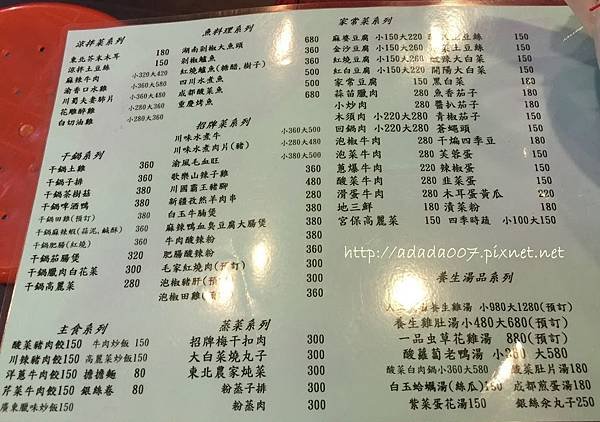 涼拌菜系列
東北芥末木耳 180
涼拌土豆絲 150
麻辣牛肉 小320大420
渝香口水雞 小360大580
川蜀夫妻肺片 小360大480
花雕醉雞 小360大480
白切油雞 小280大360
干鍋系列
干鍋土雞 360
干鍋子排 360
干鍋茶樹菇 360
干鍋啤酒鴨 360
干鍋田雞(預訂) 360
干鍋麻辣蝦(蒜泥,鹹酥) 360
干鍋肥腸(紅燒) 360
干鍋茄腸煲 320
干鍋臘肉白花菜 300
干鍋高麗菜 280
主食系列
酸菜豬肉餃150 牛肉炒飯150
川辣豬肉餃150 高麗菜炒飯150
洋蔥牛肉餃150 擔擔麵 80
芹菜牛肉餃150 銀絲卷 80
廣東臘味炒飯150
魚料理系列
湖南剁椒大魚頭 680
剁椒鱸魚 380
紅燒鱸魚(糖醋,樹子) 380
四川水煮魚
成都酸菜魚
重慶烤魚 680
招牌菜系列
川味水煮牛 小360大500
川味水煮肉片(豬) 小280大380
渝風毛血旺 小380大500
歌樂山辣子雞 360
川國霸王豬腳 360
新疆孜然羊肉串 360
白玉牛腩煲 360
麻辣鴨血臭豆腐大腸煲 360
牛肉酸辣粉 360
肥腸酸辣粉 360
毛家紅燒肉(預訂) 360
泡椒豬肝(預訂) 300
泡椒田雞(預訂) 300
蒸菜系列
招牌梅干扣肉 300
大白菜燒丸子 300
東北農家炖菜 300
粉蒸子排 300
粉蒸肉 300
家常菜系列
麻婆豆腐 小150大220
土豆絲 150
金沙豆腐 小150大260
土豆絲 150
紅燒豆腐 小150大220
大白菜 150
紅白豆腐 小150大220 開陽大白菜 150
家常豆腐 150 黑白菜 180
蒜苗臘肉 280 魚香茄子 280
小炒肉 280 醬扒茄子 180
木須肉 小220大280 青椒茄子 150
回鍋肉 小220大280 蒼蠅頭 150
泡椒牛肉 280 干煸四季豆 150
泡菜牛肉 280 芙蓉蛋 150
蔥爆牛肉 280 辣椒蛋 150
酸菜牛肉 280 韭菜蛋 150
滑蛋牛肉 280 木耳蛋黃瓜 220
地三鮮 180 漬菜粉 180
宮保高麗菜 150 四季時蔬 小100大150
http://adada007.pixnet.net
養生湯品系列
養生雞湯 小980大1280(預訂)
養生雞肚湯 小480大680(預訂)
一品虫草花雞湯 880(預訂)
酸蘿蔔老鴨湯 小360 大580
酸菜白肉鍋 小360大580 酸菜肚片湯180
白玉蛤蠣湯(絲瓜)180 成都煎蛋湯180
紫菜蛋花湯150 銀絲氽丸子250